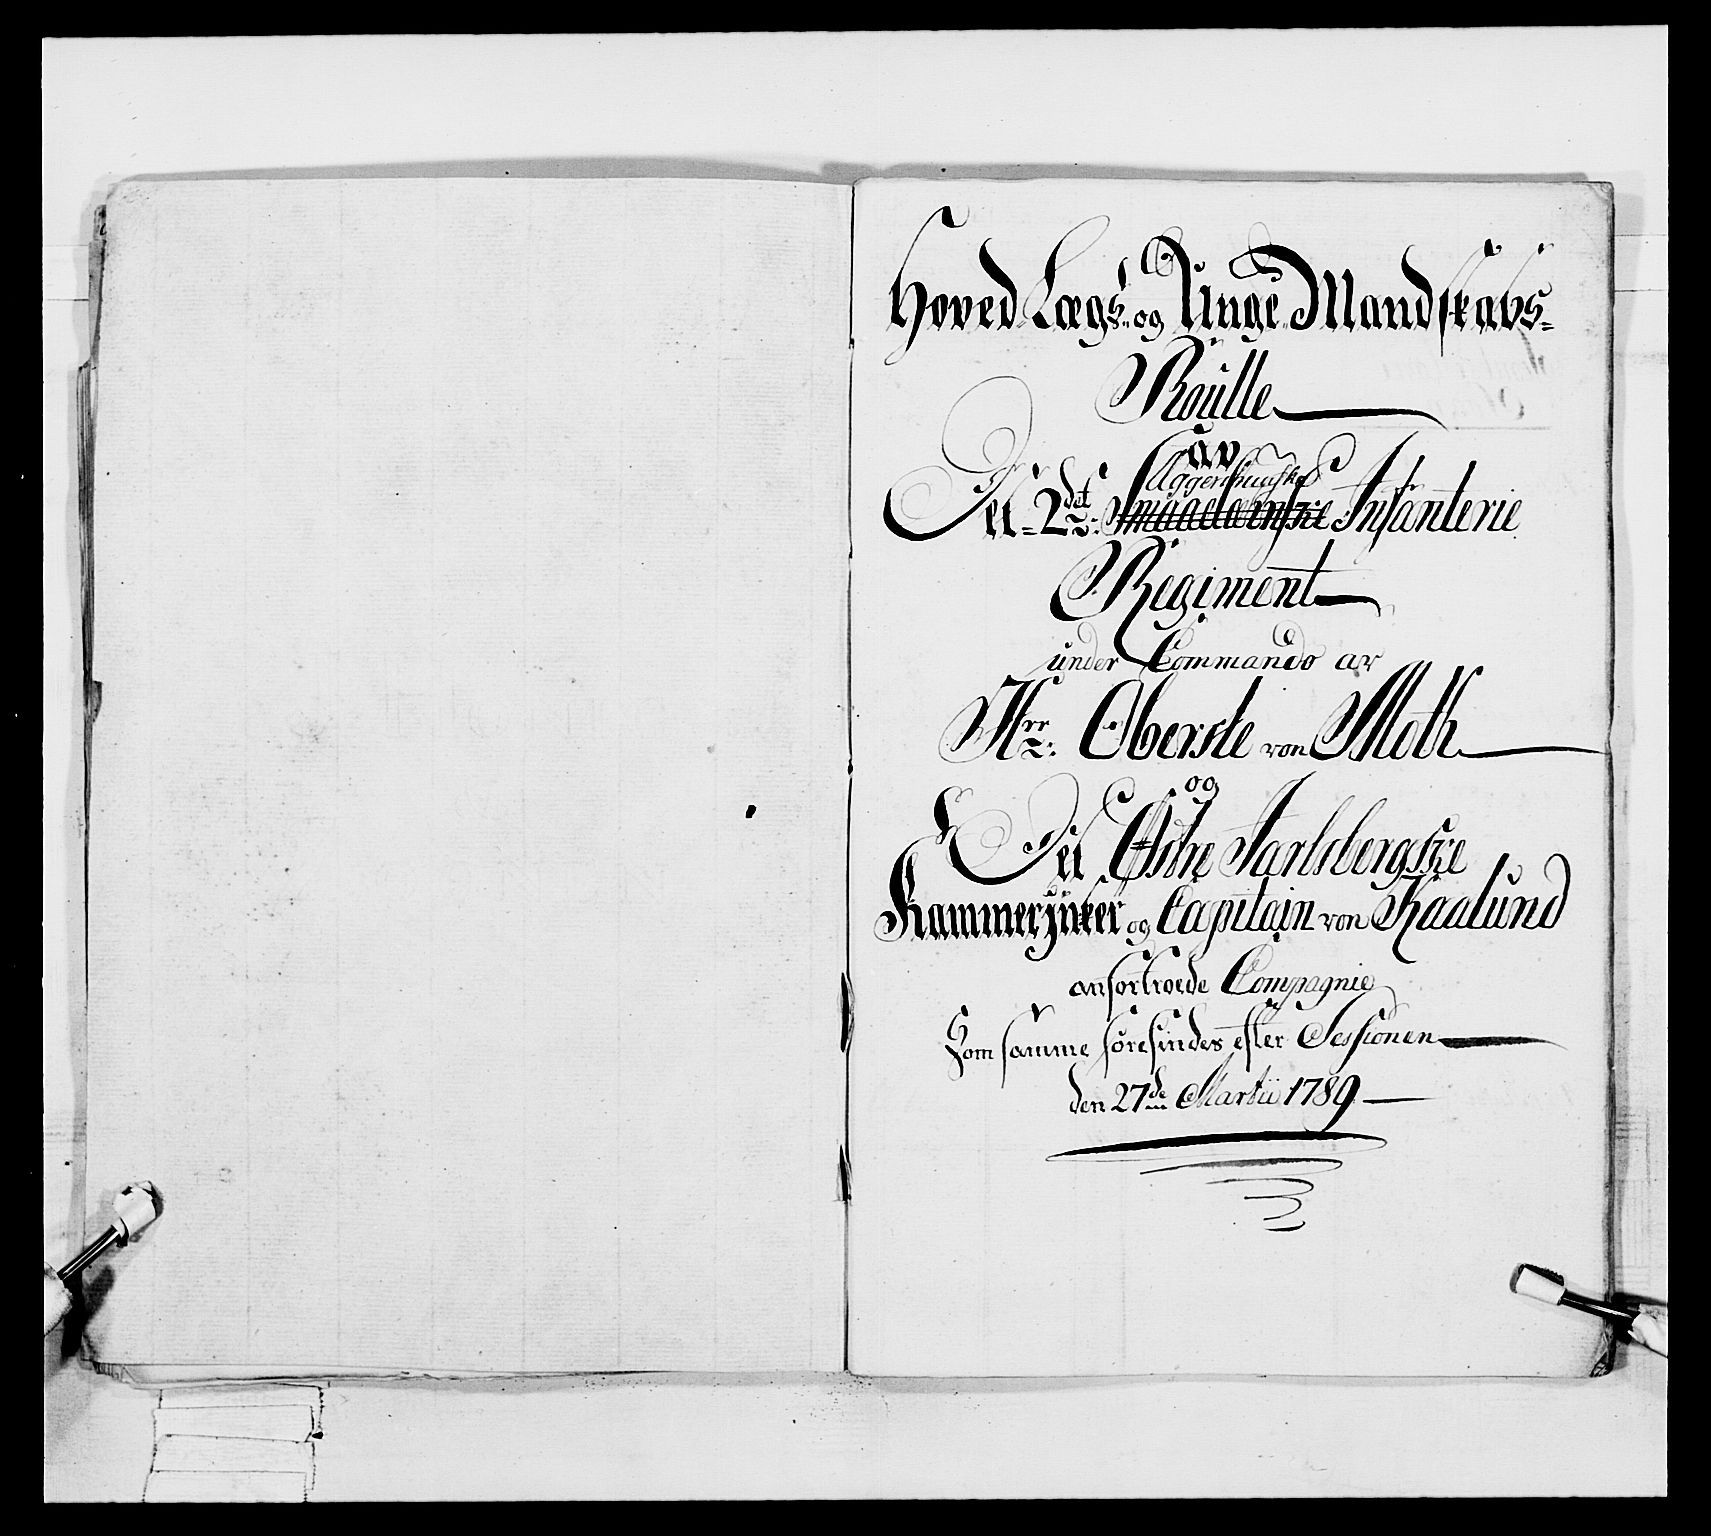 Hoved Lægs- og Unge Mandskabs-
Roulle
av
Aggershuuske
Det 2det Smaalenske Infanterie
Regiment
under Commando av
Hrr: Oberste von Moth
og
Det Østre Jarlsbergske
Kammerjunker og Capitain von Kaalund
anfortroede Compagnie
Som samme forefindes efter Sessionen
den 27de Martii 1789